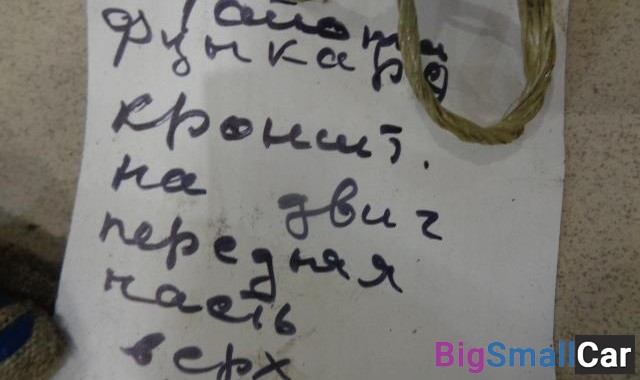 Тайота
Функарго
кроншт.
на двиг
передняя
часть
верх
BigSmallCar